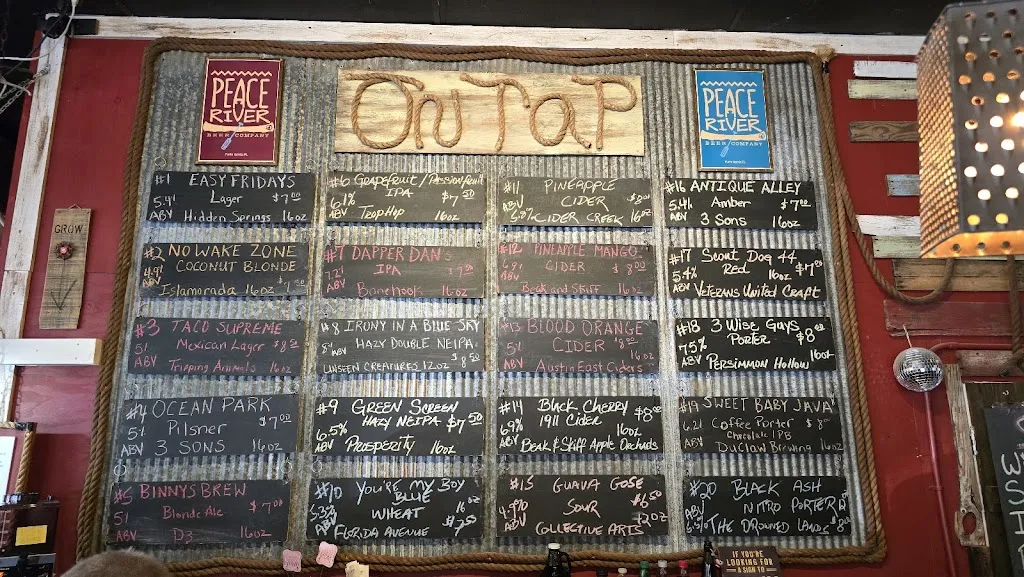 PEACE
RIVER
BEER COMPANY
On TaP
PEACE
RIVER
BEER COMPANY
GROW
#1 EASY FRIDAYS
5.4% Lager $7.00
ABV Hidden Springs 16oz
#2 NO WAKE ZONE
4.9% COCONUT BLONDE
ABV Islamorada 16oz
#3 TACO SUPREME
5% Mexican Lager $8.50
ABV Tripping Animals 16oz
#4 OCEAN PARK
5% Pilsner $7.00
ABV 3 SONS 16oz
#5 BINNYS BREW
5% Blonde Ale $7.00
ABV D3 16oz
#6 GRAPEFRUIT/PASSIONFRUIT
6.1% IPA $7.50
ABV TROP HOP 16oz
#7 DAPPER DANS
7.2% IPA $7.50
ABV Bonehook 16oz
#8 IRONY IN A BLUE SKY
8% ABV HAZY DOUBLE NEIPA
UNSEEN CREATURES 12oz $8.50
#9 GREEN SCREEN
6.5% HAZY NEIPA $7.50
ABV PROSPERITY 16oz
#10 YOU'RE MY BOY
BLUE 16oz
5.3% WHEAT
ABV FLORIDA AVENUE $7.50
#11 PINEAPPLE
ABV CIDER
5.8% CIDER CREEK 16oz
#12 PINEAPPLE MANGO
CIDER $8.00
ABV Beak and Skiff 16oz
#13 BLOOD ORANGE
5% CIDER $8.00
ABV Austin East Ciders 16oz
#14 Black Cherry $8.00
6.9% 1911 Cider 16oz
ABV Beak & Skiff Apple Orchards
#15 GUAVA GOSE
4.9% SOUR $6.50
ABV COLLECTIVE ARTS 12oz
#16 ANTIQUE ALLEY
5.4% Amber $7.00
ABV 3 Sons 16oz
#17 Scout Dog 44
5.4% Red 16oz $7.00
ABV VETERANS UNITED CRAFT
#18 3 WISE GUYS $8.00
7.5% PORTER
ABV PERSIMMON HOLLOW 16oz
#19 SWEET BABY JAVA
6.2% Coffee Porter $8.00
ABV Chocolate/PB
Duclaw Brewing 16oz
#20 BLACK ASH
ABV NITRO PORTER
5.5% THE DROWNED LANDS
IF YOU'RE
LOOKING FOR
A SIGN TO